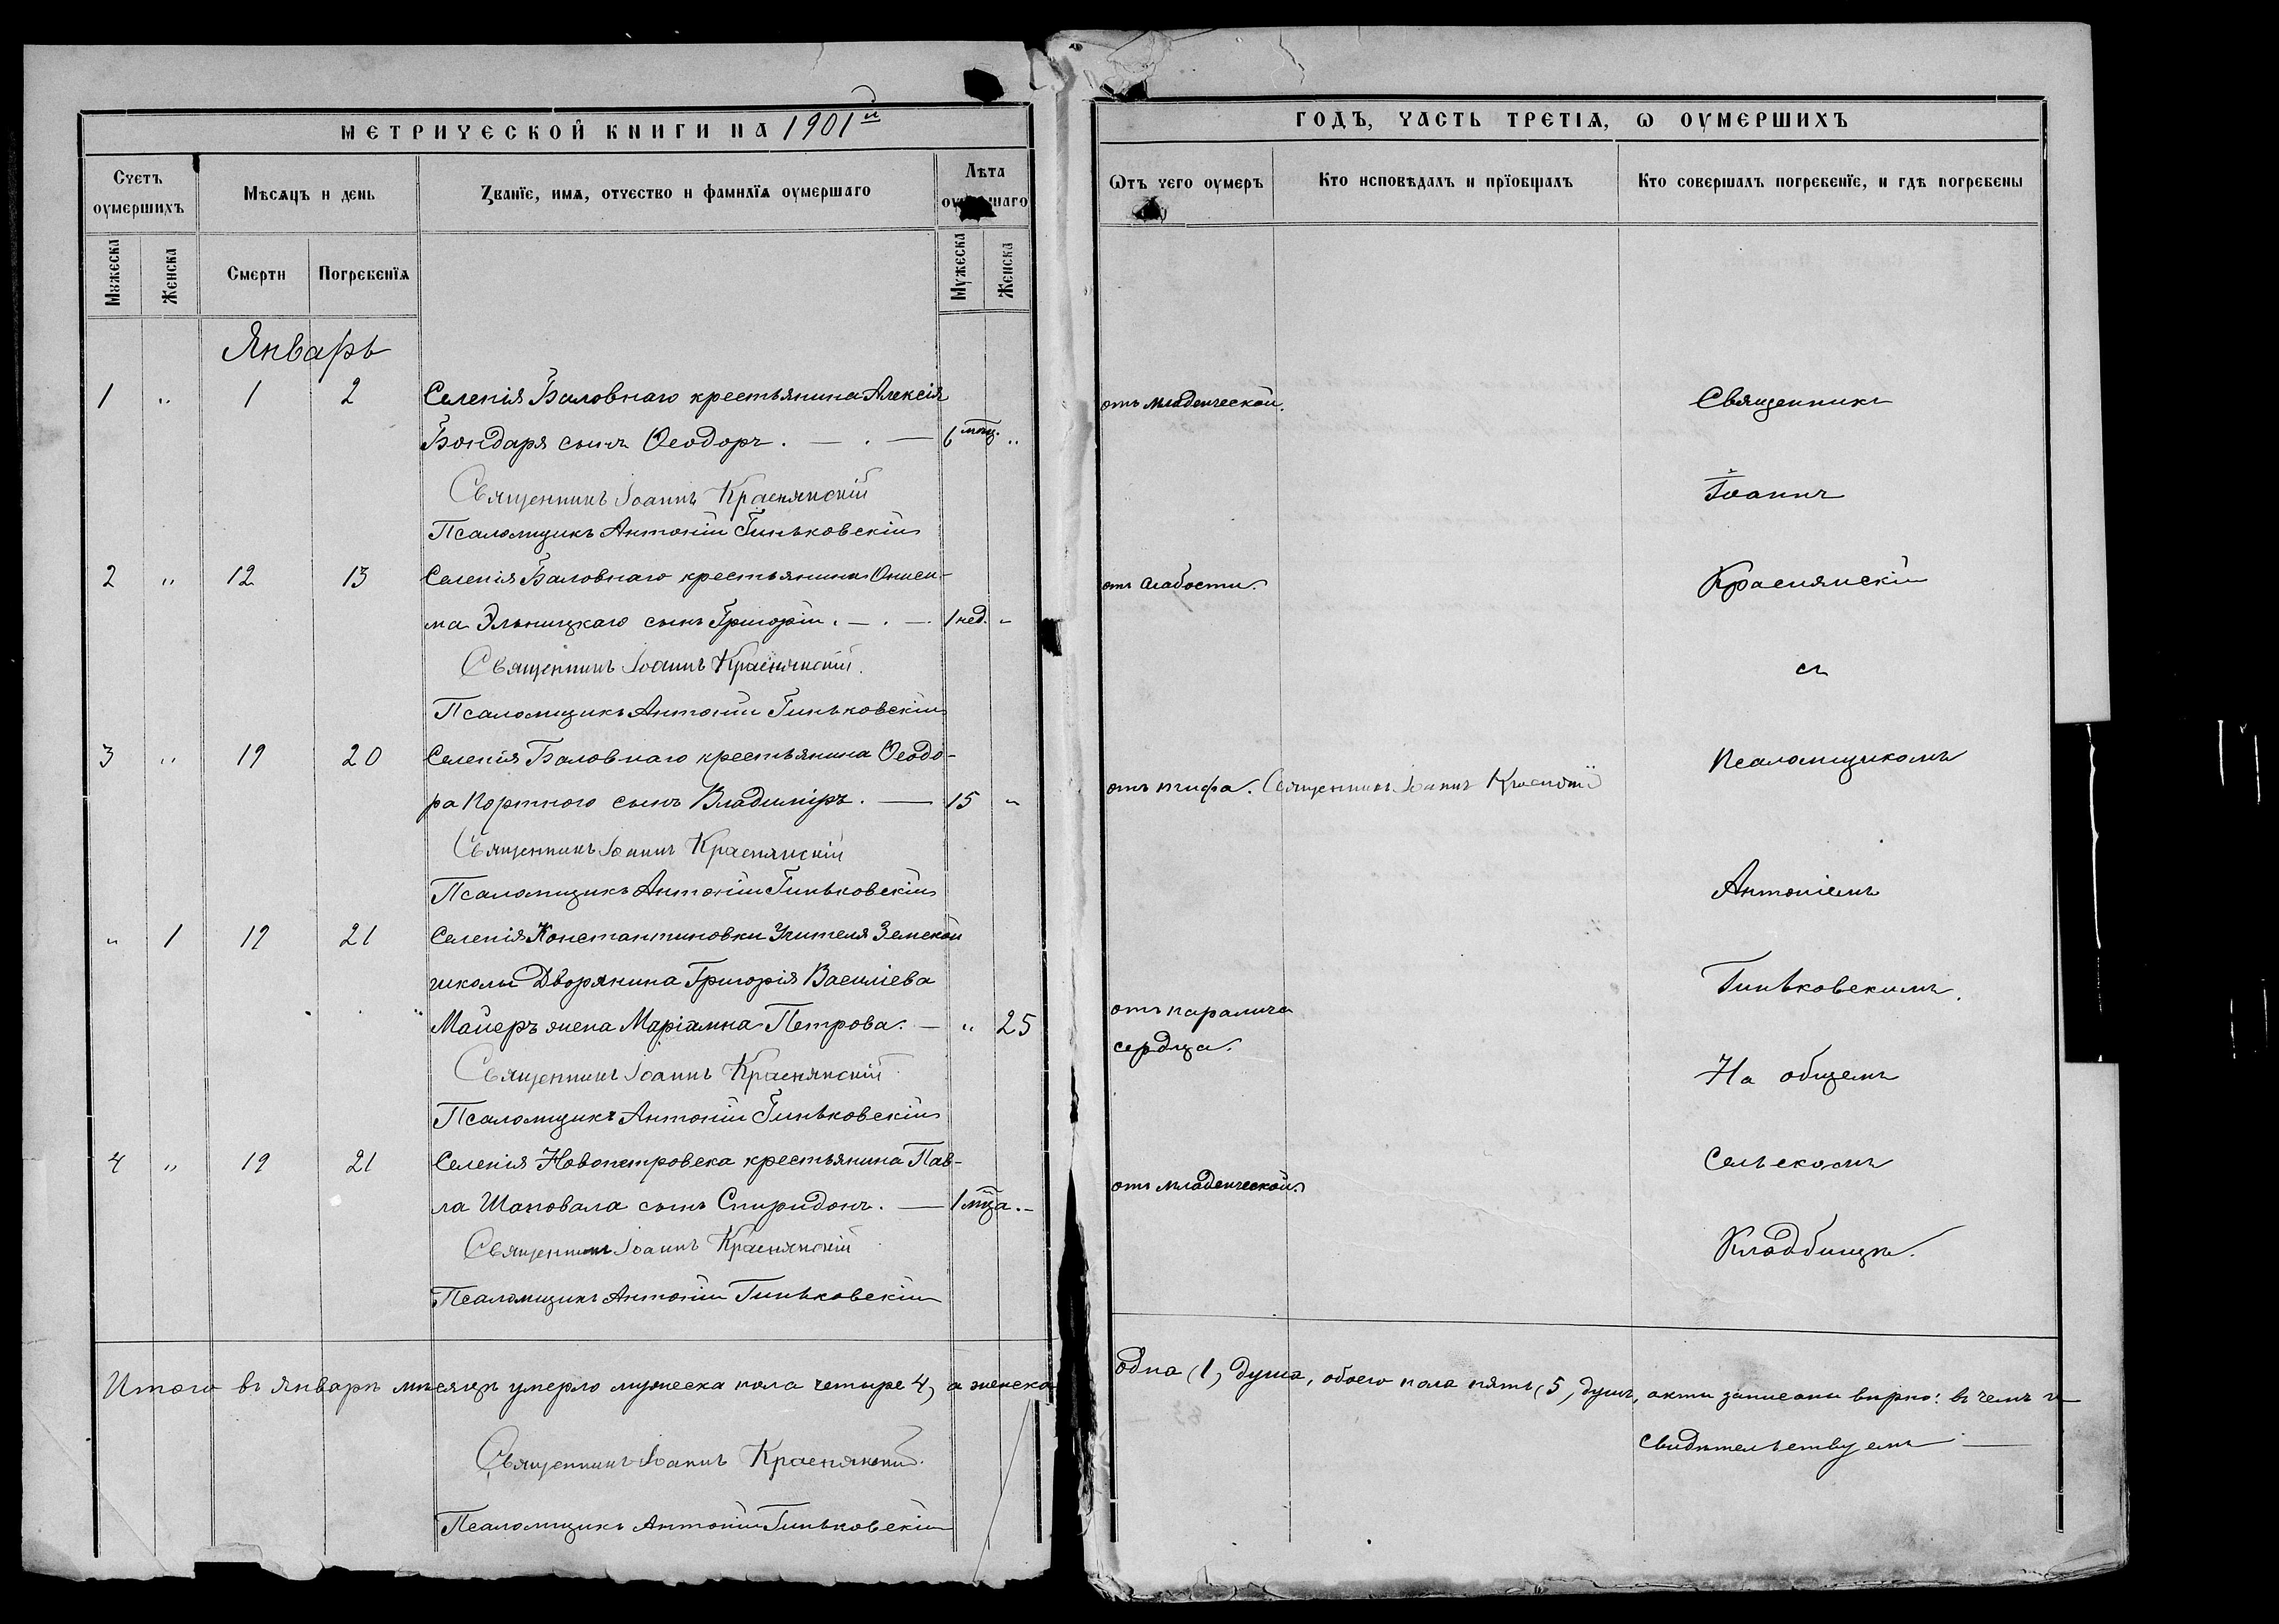 МЕТРИЧЕСКОЙ КНИГИ НА 1901й
Счетъ оумершихъ
Мѣсяцъ и день
Званїе, имя, отчество и фамилїя оумершаго
Лѣта
Мужеска
Женска
Смерти
Погребенїя
Мужеска
Женска
Январь
1 " 1 2 Селенія Баловнаго крестьянина Алексія
Бондаря сынъ Ѳеодоръ. — . — 6 мѣц. "
Священникъ Іоаннъ Краснянскій
Псаломщикъ Антоній Гиньковскій
2 " 12 13 Селенія Баловнаго крестьянина Ониси-
ма Эльницкаго сынъ Григорій. — . — 1 нед. "
Священникъ Іоаннъ Краснянскій.
Псаломщикъ Антоній Гиньковскій
3 " 19 20 Селенія Баловнаго крестьянина Ѳеодо-
ра Портного сынъ Владиміръ. — 15 "
Священникъ Іоаннъ Краснянскій
Псаломщикъ Антоній Гиньковскій
" 1 19 21 Селенія Константиновки Учителя Земской
школы Дворянина Григорія Василіева
Майеръ жена Маріамна Петрова. — " 25
Священникъ Іоаннъ Краснянскій
Псаломщикъ Антоній Гиньковскій
4 " 19 21 Селенія Новопетровска крестьянина Пав-
ла Шаповала сынъ Спиридонъ. — 1 мца. -
Священникъ Іоаннъ Краснянскій
Псаломщикъ Антоній Гиньковскій
Итого въ Январѣ мѣсяцѣ умерло мужеска пола четыре 4, а женска
Священникъ Іоаннъ Краснянскій.
Псаломщикъ Антоній Гиньковскій
ГОДЪ, ЧАСТЬ ТРЕТІЯ, Ѡ ОУМЕРШИХЪ
Ѿтъ чего оумеръ
Кто исповѣдалъ и прїобщалъ
Кто совершалъ погребенїе, и гдѣ погребены
отъ младенческой.
Священникъ
Іоаннъ
отъ слабости.
Краснянскій
съ
Псаломщикомъ
отъ тифа. Священникъ Іоаннъ
Антоніемъ
Гиньковскимъ.
отъ паралича
сердца.
На общемъ
Сельскомъ
отъ младенческой.
Кладбищѣ.
одна (1, душа, обоего пола пять (5, душъ, акты записаны вѣрно: въ чемъ и
свидѣтельствуемъ —